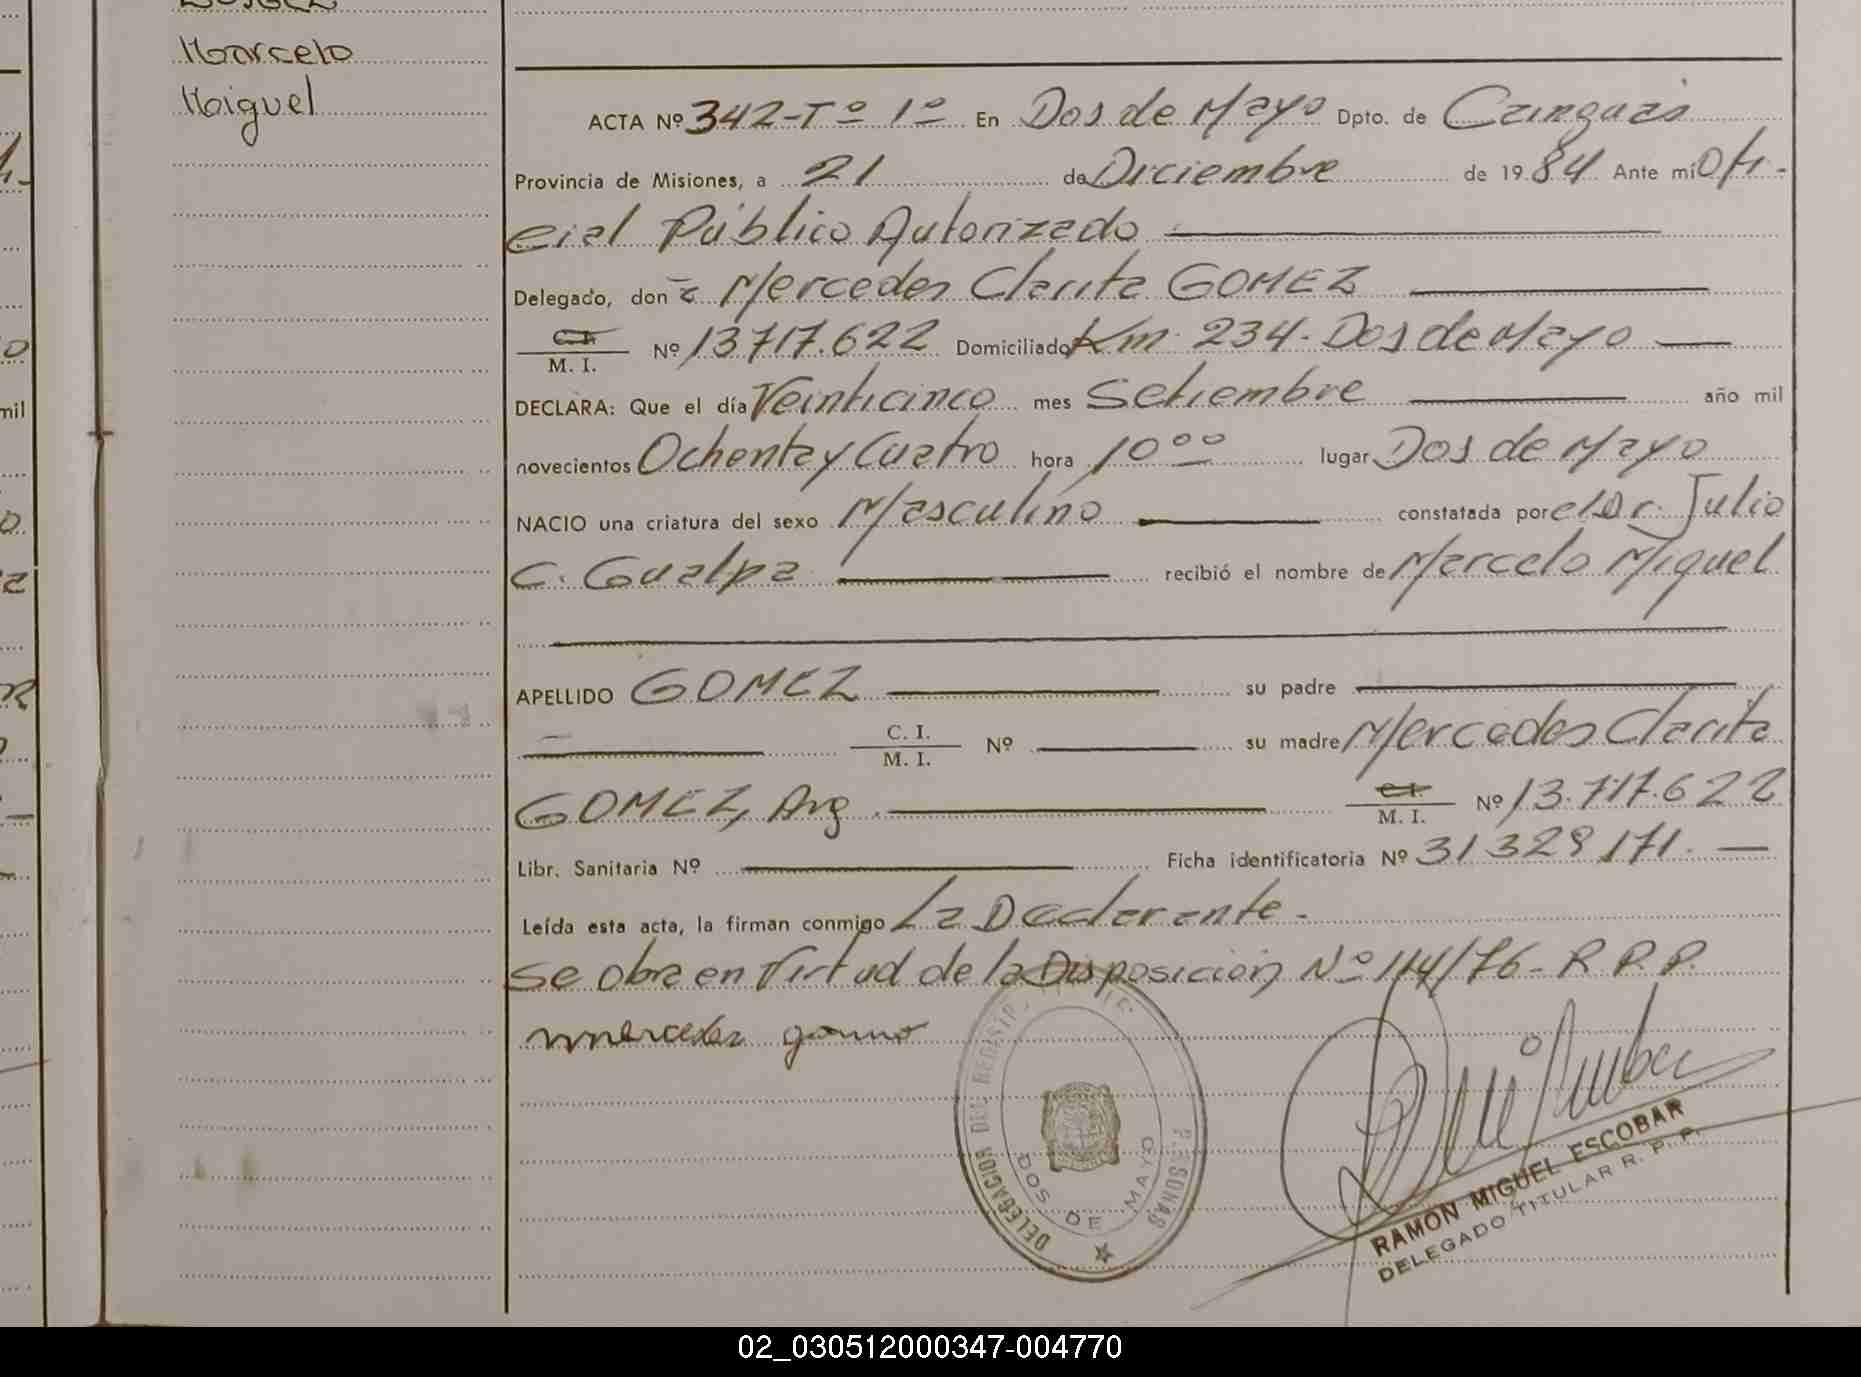 Marcelo
Maiguel
ACTA Nº 342-Tº 1º En Dos de Mayo Dpto. de Cainguás
Provincia de Misiones, a 21 de Diciembre de 1984 Ante mí Ofi-
cial Público Autorizado
Delegado, don a Mercedes Clarita GOMEZ
C.I.
M. I. Nº 13.717.622 Domiciliado Km. 234. Dos de Mayo
DECLARA: Que el día Veinticinco mes Setiembre año mil
novecientos Ochenta y Cuatro hora 10 00 lugar Dos de Mayo
NACIO una criatura del sexo Masculino constatada por el Dr. Julio
C. Gualpa recibió el nombre de Marcelo Miguel
APELLIDO GOMEZ su padre
C. I.
M. I. Nº su madre Mercedes Clarita
GOMEZ, Arg. C.I.
M. I. Nº 13.717.622
Libr. Sanitaria Nº Ficha identificatoria Nº 31 329 171.
Leída esta acta, la firman conmigo La Declarante.
Se obra en Virtud de la Disposición Nº 114/76- R.P.P.
DELEGACION DEL REGISTRO PERSONAS
DOS DE MAYO
RAMON MIGUEL ESCOBAR
DELEGADO TITULAR R. P. P.
mil
02_030512000347-004770